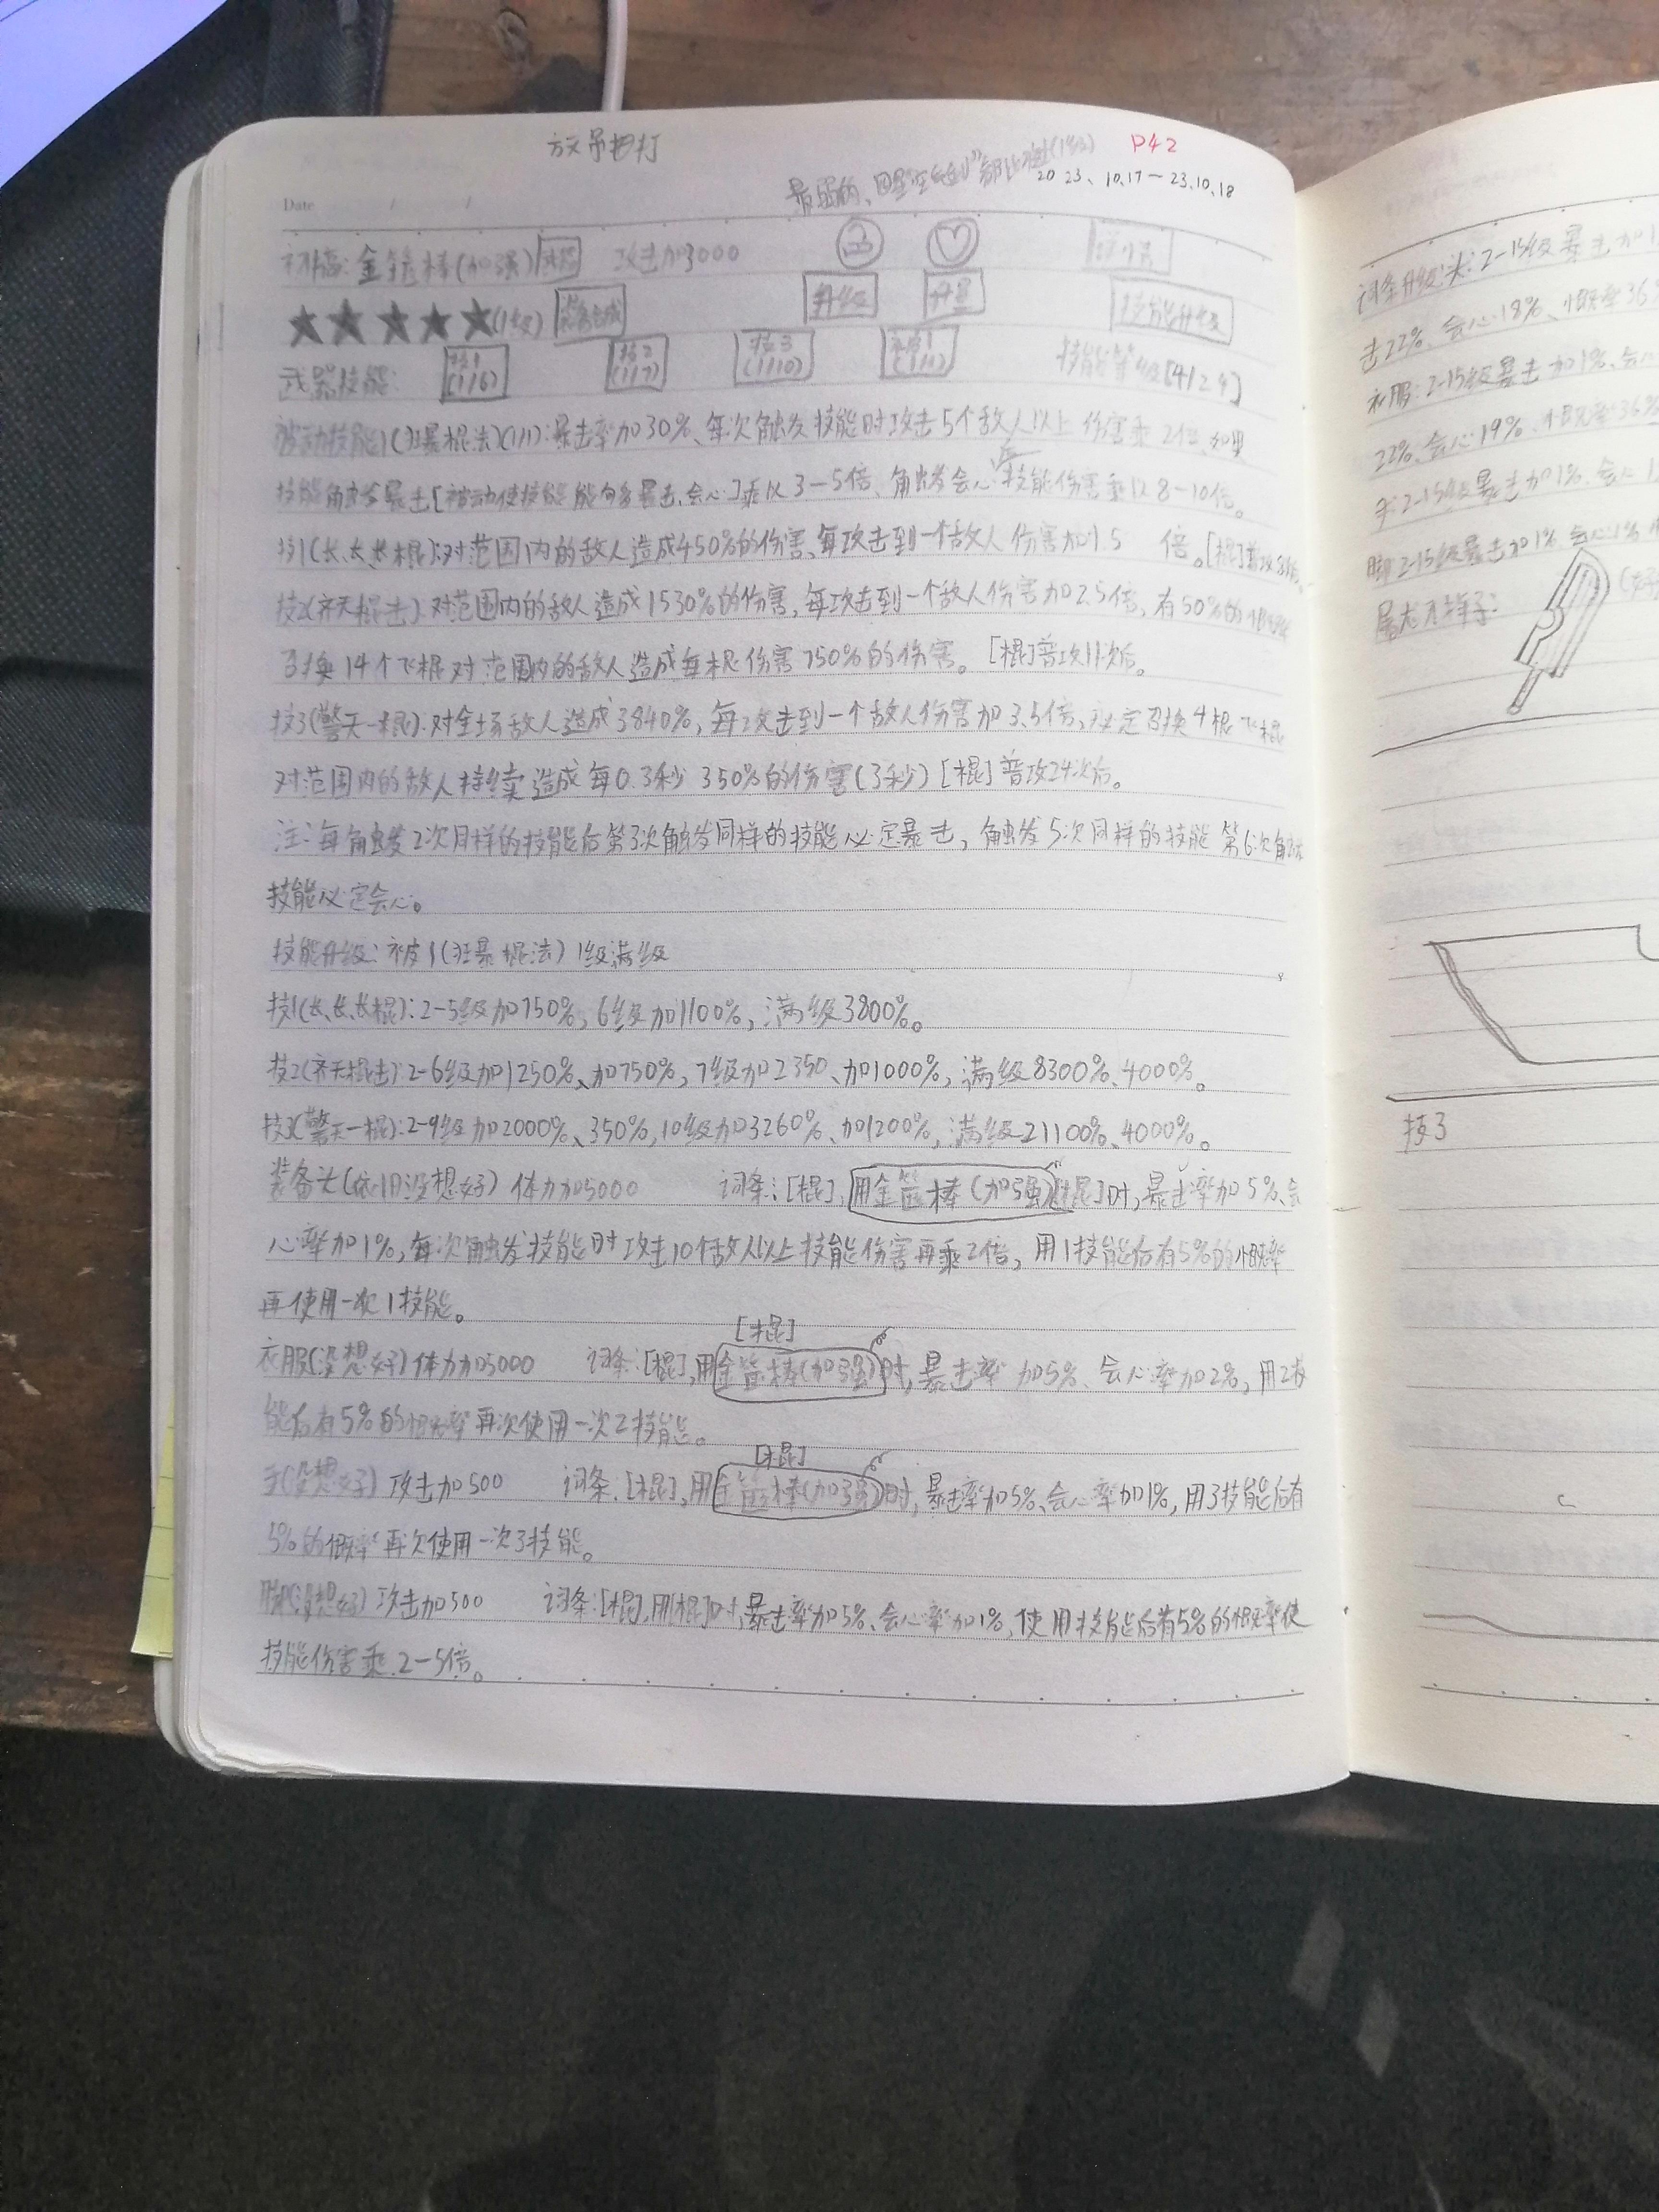 P42
2023、10.17～23.10.18
Date / /
金箍棒(加强) 攻击加3000
★★★★★(1级) 升级 升星 技能升级
武器技能: 技1(1/6) 技2(1/7) 技3(1/10) 被1(1/1) 技能等级[4/24]
被动技能1(狂暴棍法)(1/1):暴击率加30%、每次触发技能时攻击5个敌人以上伤害乘2倍、如果
技能触发暴击[被动使技能能向多暴击、会心]乘以3—5倍、触发会心技能伤害乘以8—10倍。
技1(长、长、长棍):对范围内的敌人造成450%的伤害、每攻击到一个敌人伤害加1.5倍。[棍]普攻8次后。
技2(齐天棍击):对范围内的敌人造成1530%的伤害,每攻击到一个敌人伤害加2.5倍,有50%的概率
召换14个飞棍对范围内的敌人造成每棍伤害750%的伤害。[棍]普攻11次后。
技3(警天一棍):对全场敌人造成3840%,每次击到一个敌人伤害加3.5倍,必定召换4棍飞棍
对范围内的敌人持续造成每0.3秒350%的伤害(3秒)[棍]普攻24次后。
注:每触发2次同样的技能后第3次触发同样的技能必定暴击,触发5次同样的技能第6次触发
技能必定会心。
技能升级:被1(狂暴棍法)1级满级
技1(长、长、长棍):2-5级加750%,6级加1100%,满级3800%。
技2(齐天棍击):2-6级加1250%、加750%,7级加2350、加1000%,满级8300%、4000%。
技3(警天一棍):2-9级加2000%、350%,10级加3260%、加1200%,满级21100%、4000%。
装备头(依旧没想好) 体力加5000 词条:[棍],用金箍棒(加强)[棍]时,暴击率加5%、会
心率加1%,每次触发技能时攻击10个敌人以上技能伤害再乘2倍,用1技能后有5%的概率
再使用一次1技能。
[棍]
衣服(没想好)体力加5000 词条:[棍],用金箍棒(加强)时,暴击率加5%、会心率加2%,用2技
能后有5%的概率再次使用一次2技能。
[棍]
手(没想好)攻击加500 词条:[棍],用金箍棒(加强)时,暴击率加5%、会心率加1%,用3技能后有
5%的概率再次使用一次3技能。
脚(没想好)攻击加500 词条:[棍],用[棍]时,暴击率加5%、会心率加1%,使用技能后有5%的概率使
技能伤害乘2—5倍。
词条升级:头:2-15级暴击加1
击22%、会心18%、概率36%
衣服:2-15级暴击加1%、会心
22%、会心19%、概率36%
手:2-15级暴击加1%、会心1
脚:2-15级暴击加1%、会心1%
技3